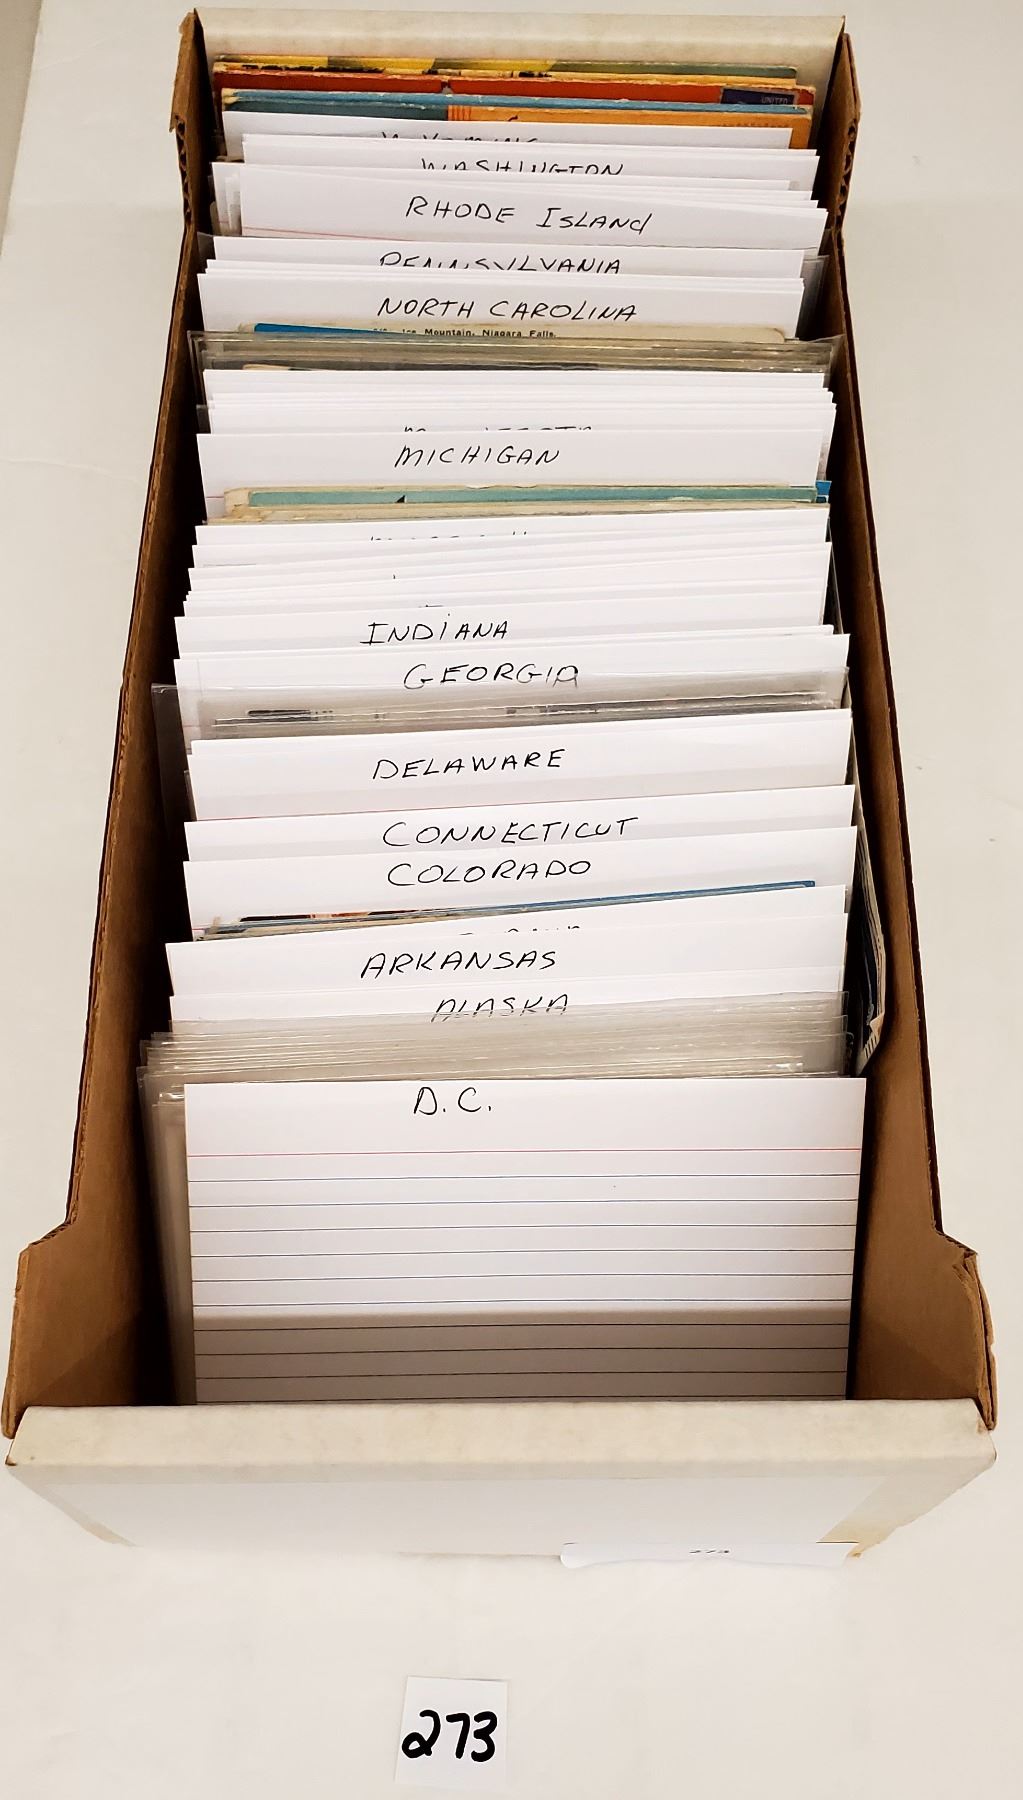 UNITED
WYOMING
WASHINGTON
RHODE ISLANd
PENNSYLVANIA
NORTH CAROLINA
Ice Mountain, Niagara Falls.
MICHIGAN
INDiANA
GEORGIA
DELAWARE
CONNECTICUT
COLORADO
ARKANSAS
ALASKA
D.C.
273
273